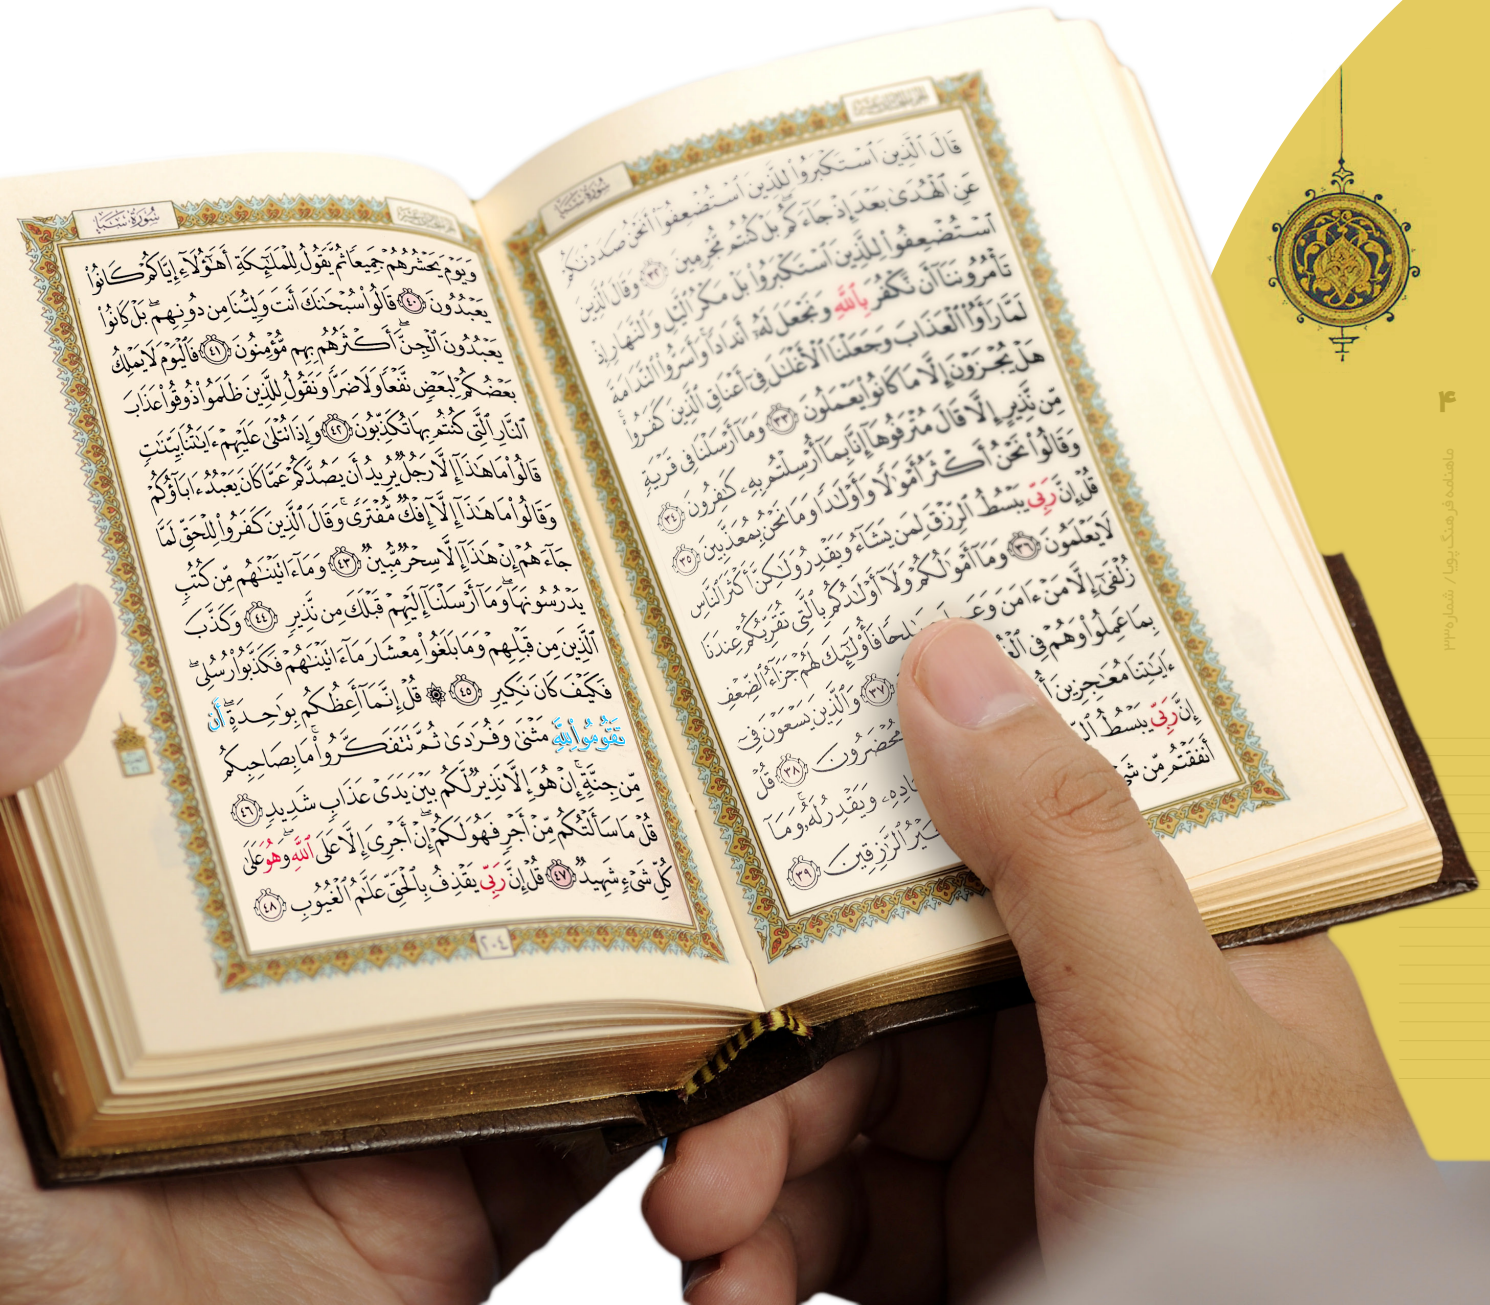 سُورَةُ سَبَإٍ
قَالَ ٱلَّذِينَ ٱسۡتَكۡبَرُواْ لِلَّذِينَ ٱسۡتُضۡعِفُوٓاْ أَنَحۡنُ صَدَدۡنَٰكُمۡ
عَنِ ٱلۡهُدَىٰ بَعۡدَ إِذۡ جَآءَكُمۖ بَلۡ كُنتُم مُّجۡرِمِينَ ٣٢ وَقَالَ ٱلَّذِينَ
ٱسۡتُضۡعِفُواْ لِلَّذِينَ ٱسۡتَكۡبَرُواْ بَلۡ مَكۡرُ ٱلَّيۡلِ وَٱلنَّهَارِ إِذۡ
تَأۡمُرُونَنَآ أَن نَّكۡفُرَ بِٱللَّهِ وَنَجۡعَلَ لَهُۥٓ أَندَادٗاۚ وَأَسَرُّواْ ٱلنَّدَامَةَ
لَمَّا رَأَوُاْ ٱلۡعَذَابَۚ وَجَعَلۡنَا ٱلۡأَغۡلَٰلَ فِيٓ أَعۡنَاقِ ٱلَّذِينَ كَفَرُواْۖ
هَلۡ يُجۡزَوۡنَ إِلَّا مَا كَانُواْ يَعۡمَلُونَ ٣٣ وَمَآ أَرۡسَلۡنَا فِي قَرۡيَةٖ
مِّن نَّذِيرٍ إِلَّا قَالَ مُتۡرَفُوهَآ إِنَّا بِمَآ أُرۡسِلۡتُم بِهِۦ كَٰفِرُونَ ٣٤
وَقَالُواْ نَحۡنُ أَكۡثَرُ أَمۡوَٰلٗا وَأَوۡلَٰدٗا وَمَا نَحۡنُ بِمُعَذَّبِينَ ٣٥
قُلۡ إِنَّ رَبِّي يَبۡسُطُ ٱلرِّزۡقَ لِمَن يَشَآءُ وَيَقۡدِرُ وَلَٰكِنَّ أَكۡثَرَ ٱلنَّاسِ
لَا يَعۡلَمُونَ ٣٦ وَمَآ أَمۡوَٰلُكُمۡ وَلَآ أَوۡلَٰدُكُم بِٱلَّتِي تُقَرِّبُكُمۡ عِندَنَا
زُلۡفَىٰٓ إِلَّا مَنۡ ءَامَنَ وَعَمِلَ صَٰلِحٗا فَأُوْلَٰٓئِكَ لَهُمۡ جَزَآءُ ٱلضِّعۡفِ
بِمَا عَمِلُواْ وَهُمۡ فِي ٣٧ وَٱلَّذِينَ يَسۡعَوۡنَ فِيٓ
ءَايَٰتِنَا مُعَٰجِزِينَ مُحۡضَرُونَ ٣٨ قُلۡ
إِنَّ رَبِّي يَبۡسُطُ وَيَقۡدِرُ لَهُۥۚ وَمَآ
أَنفَقۡتُم مِّن ٱلرَّٰزِقِينَ ٣٩
سُورَةُ سَبَإٍ
وَيَوۡمَ يَحۡشُرُهُمۡ جَمِيعٗا ثُمَّ يَقُولُ لِلۡمَلَٰٓئِكَةِ أَهَٰٓؤُلَآءِ إِيَّاكُمۡ كَانُواْ
يَعۡبُدُونَ ٤٠ قَالُواْ سُبۡحَٰنَكَ أَنتَ وَلِيُّنَا مِن دُونِهِمۖ بَلۡ كَانُواْ
يَعۡبُدُونَ ٱلۡجِنَّۖ أَكۡثَرُهُم بِهِم مُّؤۡمِنُونَ ٤١ فَٱلۡيَوۡمَ لَا يَمۡلِكُ
بَعۡضُكُمۡ لِبَعۡضٖ نَّفۡعٗا وَلَا ضَرّٗا وَنَقُولُ لِلَّذِينَ ظَلَمُواْ ذُوقُواْ عَذَابَ
ٱلنَّارِ ٱلَّتِي كُنتُم بِهَا تُكَذِّبُونَ ٤٢ وَإِذَا تُتۡلَىٰ عَلَيۡهِمۡ ءَايَٰتُنَا بَيِّنَٰتٖ
قَالُواْ مَا هَٰذَآ إِلَّا رَجُلٞ يُرِيدُ أَن يَصُدَّكُمۡ عَمَّا كَانَ يَعۡبُدُ ءَابَآؤُكُمۡ
وَقَالُواْ مَا هَٰذَآ إِلَّآ إِفۡكٞ مُّفۡتَرٗىۚ وَقَالَ ٱلَّذِينَ كَفَرُواْ لِلۡحَقِّ لَمَّا
جَآءَهُمۡ إِنۡ هَٰذَآ إِلَّا سِحۡرٞ مُّبِينٞ ٤٣ وَمَآ ءَاتَيۡنَٰهُم مِّن كُتُبٖ
يَدۡرُسُونَهَاۖ وَمَآ أَرۡسَلۡنَآ إِلَيۡهِمۡ قَبۡلَكَ مِن نَّذِيرٖ ٤٤ وَكَذَّبَ
ٱلَّذِينَ مِن قَبۡلِهِمۡ وَمَا بَلَغُواْ مِعۡشَارَ مَآ ءَاتَيۡنَٰهُمۡ فَكَذَّبُواْ رُسُلِيۖ
فَكَيۡفَ كَانَ نَكِيرِ ٤٥ ۞ قُلۡ إِنَّمَآ أَعِظُكُم بِوَٰحِدَةٍۖ أَن
تَقُومُواْ لِلَّهِ مَثۡنَىٰ وَفُرَٰدَىٰ ثُمَّ تَتَفَكَّرُواْۚ مَا بِصَاحِبِكُم
مِّن جِنَّةٍۚ إِنۡ هُوَ إِلَّا نَذِيرٞ لَّكُم بَيۡنَ يَدَيۡ عَذَابٖ شَدِيدٖ ٤٦
قُلۡ مَا سَأَلۡتُكُم مِّنۡ أَجۡرٖ فَهُوَ لَكُمۡۖ إِنۡ أَجۡرِيَ إِلَّا عَلَى ٱللَّهِۖ وَهُوَ عَلَىٰ
كُلِّ شَيۡءٖ شَهِيدٞ ٤٧ قُلۡ إِنَّ رَبِّي يَقۡذِفُ بِٱلۡحَقِّ عَلَّٰمُ ٱلۡغُيُوبِ ٤٨
٢٠٤
۴
ماهنامه فرهنگ پویا / شماره ۳۳